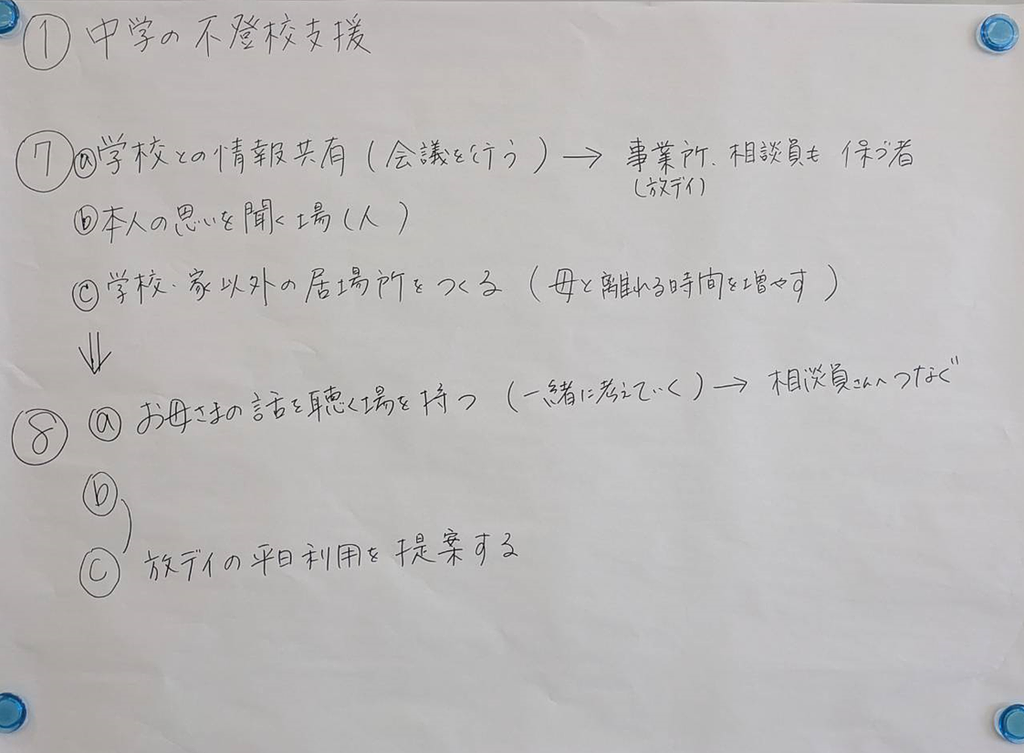 ① 中学の不登校支援
⑦ ⓐ学校との情報共有(会議を行う)→ 事業所、相談員も 保ゴ者
(放デイ)
ⓑ本人の思いを聞く場(人)
ⓒ学校・家以外の居場所をつくる(母と離れる時間を増やす)
⇓
⑧ ⓐ お母さまの話を聴く場を持つ(一緒に考えていく)→ 相談員さんへつなぐ
ⓑ
ⓒ 放デイの平日利用を提案する